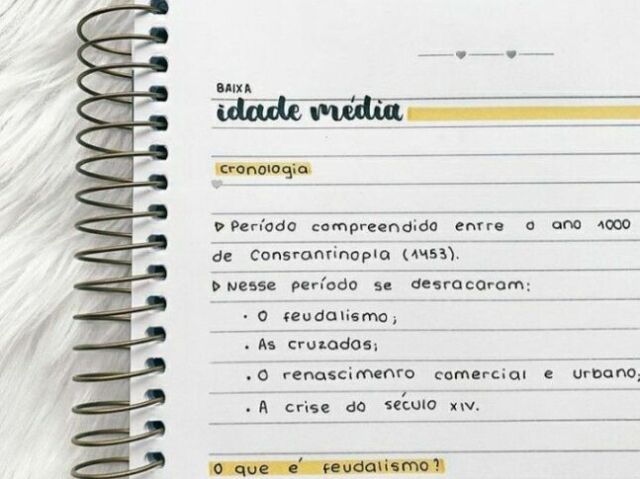 BAIXA
idade média
cronologia
▷ Período compreendido entre o ano 1000
de Constantinopla (1453).
▷ Nesse período se destacaram:
• O feudalismo;
• As cruzadas;
• O renascimento comercial e urbano;
• A crise do século XIV.
O que é feudalismo?